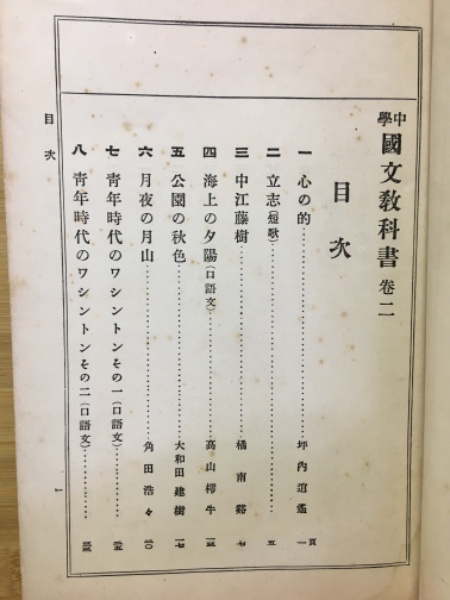 中學國文教科書 卷二
目次
一 心の的 坪內逍遙 頁一
二 立志(短歌) 五
三 中江藤樹 橘南谿 七
四 海上の夕陽(口語文) 高山樗牛
五 公園の秋色 大和田建樹 一七
六 月夜の月山 角田浩々 二〇
七 靑年時代のワシントンその一(口語文)
八 靑年時代のワシントンその二(口語文)
目次
一